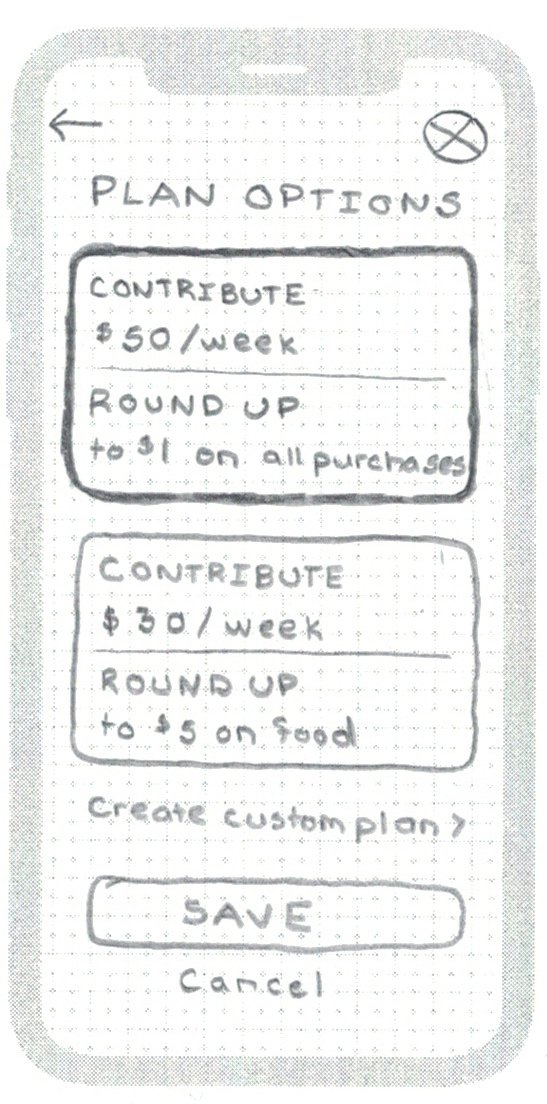 PLAN OPTIONS
CONTRIBUTE
$50/week
ROUND UP
to $1 on all purchases
CONTRIBUTE
$30/week
ROUND UP
to $5 on food
Create custom plan >
SAVE
Cancel